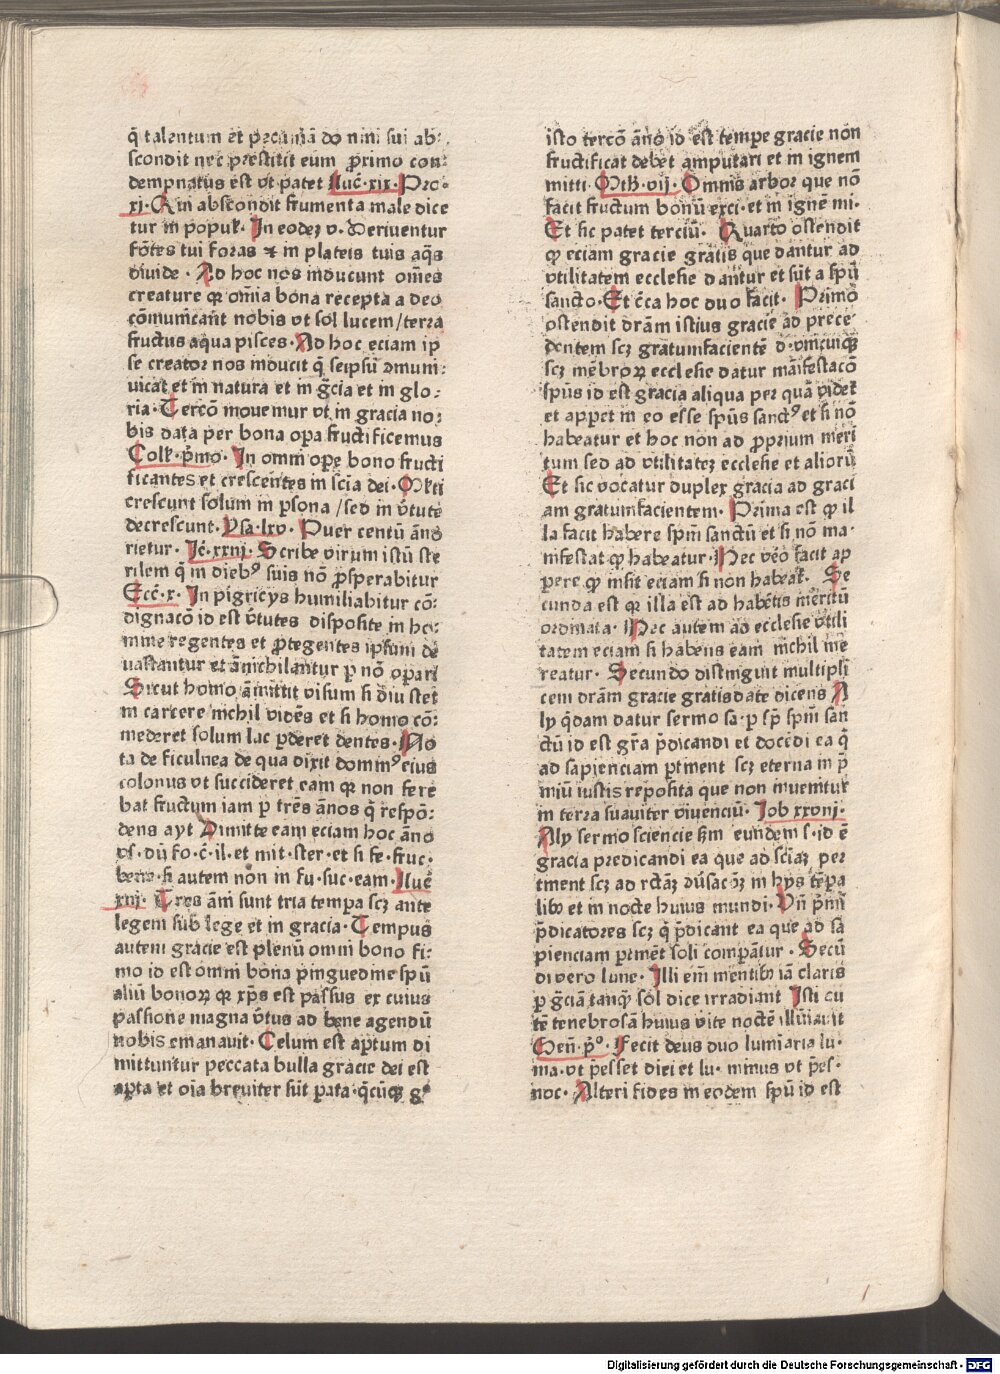 q̄ talentum et pecuniā do nini sui ab⸗
scondit nec prestitit eum p̄rimo con⸗
dempnatus est vt patet Luc̄·xix·Pro⸗
xj·Qui abscondit frumenta male dice
tur in popul̄· In eodeꝫ v·Deriuentur
fōtes tui foras ⁊ in plateis tuis aq̄s
diuide · Ad hoc nos inducunt om̄es
creature qꝛ om̄ia bona recepta a deo
cōmunicant nobis vt sol lucem/terra
fructus aqua pisces·Ad hoc eciam ip
se creator nos inducit q̄ seipsū ꝯmuni⸗
uicat et in natura et in gr̄cia et in glo⸗
ria·Tercō mouemur vt in gracia no⸗
bis data per bona op̄a fructificemus
Coll̄·p̄mo· In omni ope bono fructi
ficantes et crescentes in scia dei·Ml̄ti
crescunt solum in p̄sona /sed in v̄tute
decrescunt·Ysa·lxv· Puer centū ānō
rietur· Jc̄·xxnj· Scribe virum istū ste
rilem q̄ in diebꝰ suis nō ꝓsperabitur
Ecc̄·x· In pigricijs humiliabitur cō⸗
dignacō id est v̄tutes disposite in ho⸗
mine regentes et ꝓtegentes ipsum de
uastantur et ānichilantur p nō op̄ari
Sicut homo āmittit visum si diu stet
in carcere nichil vidēs et si homo cō⸗
mederet solum lac p̄deret dentes·No
ta de ficulnea de qua dixit dominꝰ eius
colonus vt succideret eam qꝛ non fere
bat fructum iam p trēs ānos q̄ respō⸗
dens ayt Dimitte eam eciam hoc āno
vs·dū fo·c̄·il·et mit·ster·et si fe·fruc·
bene·si autem non in fu·suc·eam·Luc̄
xiij· Tres āni sunt tria tempa scꝫ ante
legem sub lege et in gracia·Tempus
autem gracie est plenū omni bono fi⸗
mo id est omni bona pinguedine spū
aliū bonoꝝ qꝛ xp̄s est passus ex cuius
passione magna v̄tus ad bene agendū
nobis emanauit· Celum est aptum di
mittuntur peccata bulla gracie dei est
apta et oīa breuiter sūt pata·q̄cūqꝫ gͦ
isto tercō āno id est tempe gracie non
fructificat debet amputari et in ignem
mitti·Mth̄·vij·Omnis arbor que nō
facit fructum bonū exci·et in ignē mi·
Et sic patet terciū· Quarto ostendit
ꝙ eciam gracie gratis que dantur ad
vtilitatem ecclesie dantur et sūt a spū
sancto·Et c̄ca hoc duo facit· Primo
ostendit dr̄am istius gracie ad prece⸗
dentem scꝫ gratumfacientē d·vnicuiqꝫ
scꝫ mēbroꝝ ecclesie datur māifestacō
spūs id est gracia aliqua per quā videt̄
et appet in eo esse spūs sanctꝰ et si nō
habeatur et hoc non ad ꝓprium meri
tum sed ad vtilitateꝫ ecclesie et aliorū
Et sic vocatur duplex gracia ad graci
am gratumfacientem· Prima est ꝙ il
la facit habere spm̄ sanctū et si nō ma⸗
nifestat ꝙ habeatur·Hec v̄o facit ap
pere ꝙ insit eciam si non habeat̄· Se
cunda est qꝛ illa est ad habētis meritū
ordinata· Hec autem ad ecclesie vtili
tatem eciam si habens eam nichil me
reatur· Secundo distinguit multipli
cem dr̄am gracie gratisdate dicens A
ly q̄dam datur sermo sa·p sp̄ spm̄ san
ctū id est gr̄a p̄dicandi et docēdi ea q̄
ad sapienciam ptinent scꝫ eterna in p̄
miū iustis reposita que non inueniunt̄
in terra suauiter viuenciū· Job xxvnj·
Aly sermo sciencie scm̄ eundem s·id ē
gracia predicandi ea que ad sciāꝫ per
tinent scꝫ ad rc̄tāꝫ cōu̇sacōꝫ in hijs tēpa
libꝫ et in nocte huius mundi·Vn̄ p̄mi
p̄dicatores scꝫ q̄ p̄dicant ea que ad sā
pienciam ptinēt soli compāntur · Secū
di vero lune· Illi eni mentibꝫ iā claris
p gr̄ciā tanqꝫ sol dice irradiant Isti cu
tē tenebrosā huius vite noctē illūinauit
Gen̄·p̄ͦ· Fecit deus duo luminaria lu⸗
ma·vt p̄esset diei et lu·minus vt p̄es⸗
noc· Alteri fides in eodem spū id est
Digitalisierung gefördert durch die Deutsche Forschungsgemeinschaft - DFG